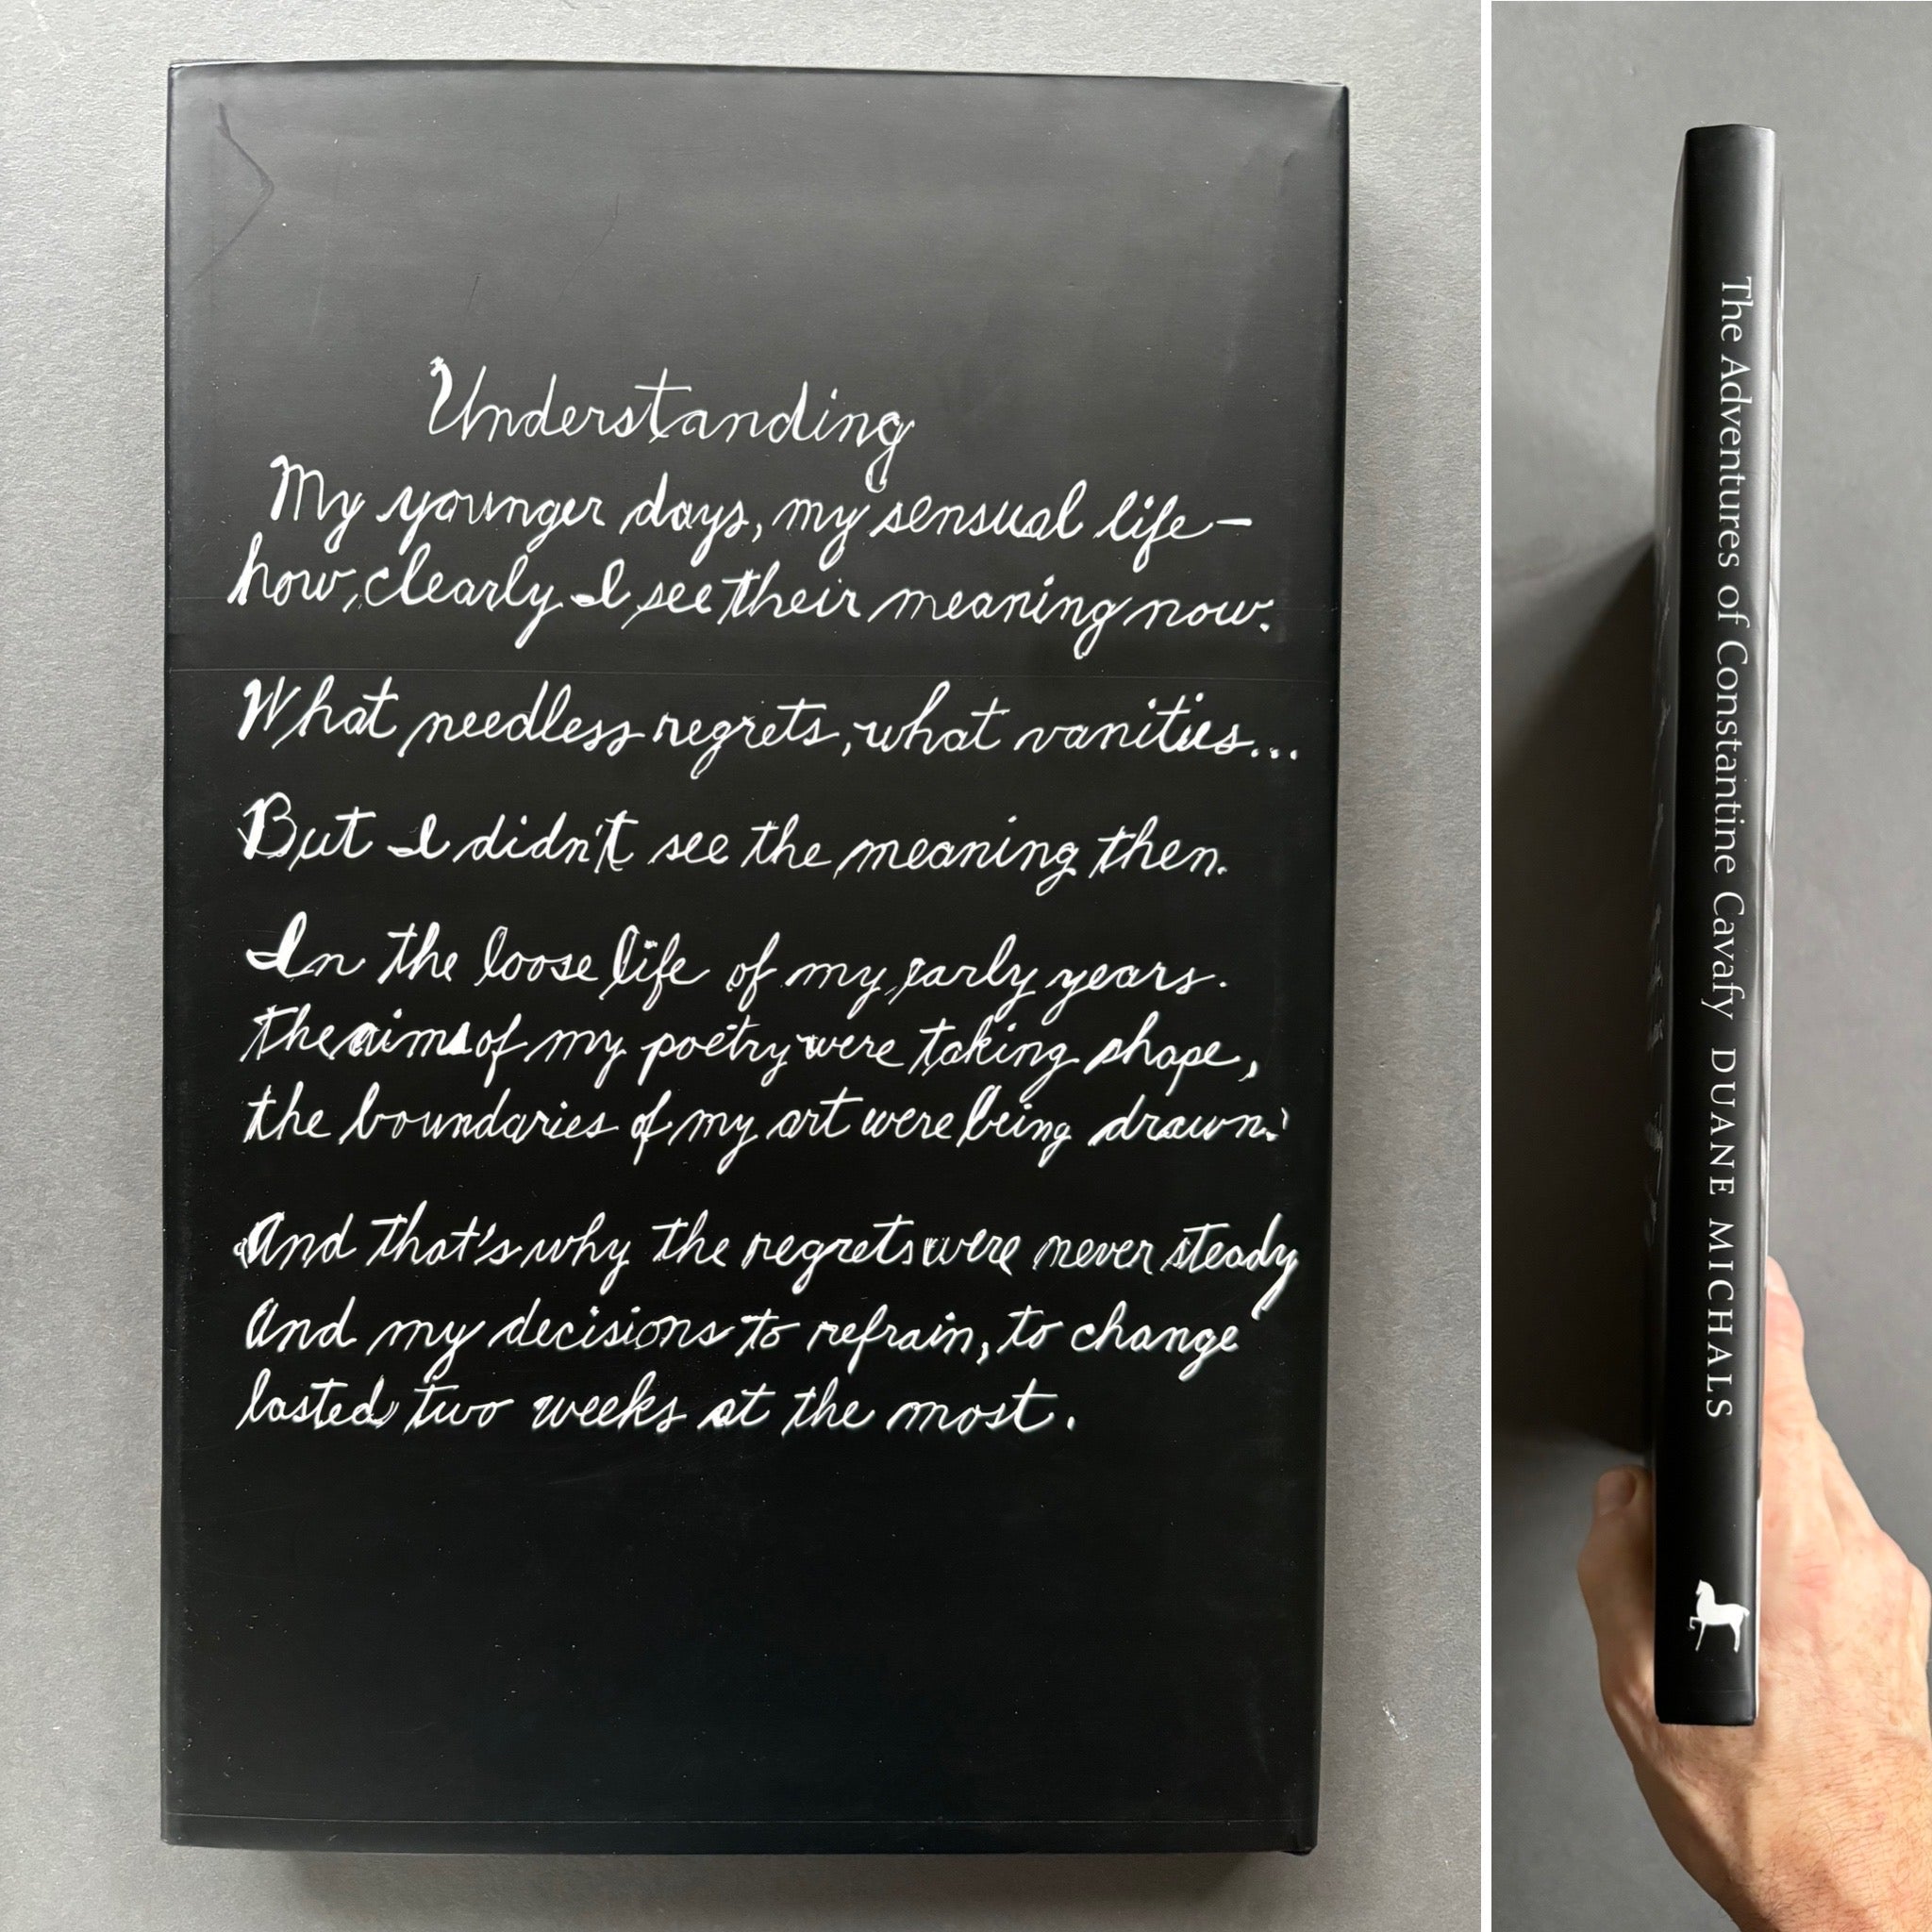 Understanding
My younger days, my sensual life –
how clearly I see their meaning now.
What needless regrets, what vanities...
But I didn't see the meaning then.
In the loose life of my early years.
the aims of my poetry were taking shape,
the boundaries of my art were being drawn.
And that's why the regrets were never steady
And my decisions to refrain, to change
lasted two weeks at the most.
The Adventures of Constantine Cavafy DUANE MICHALS